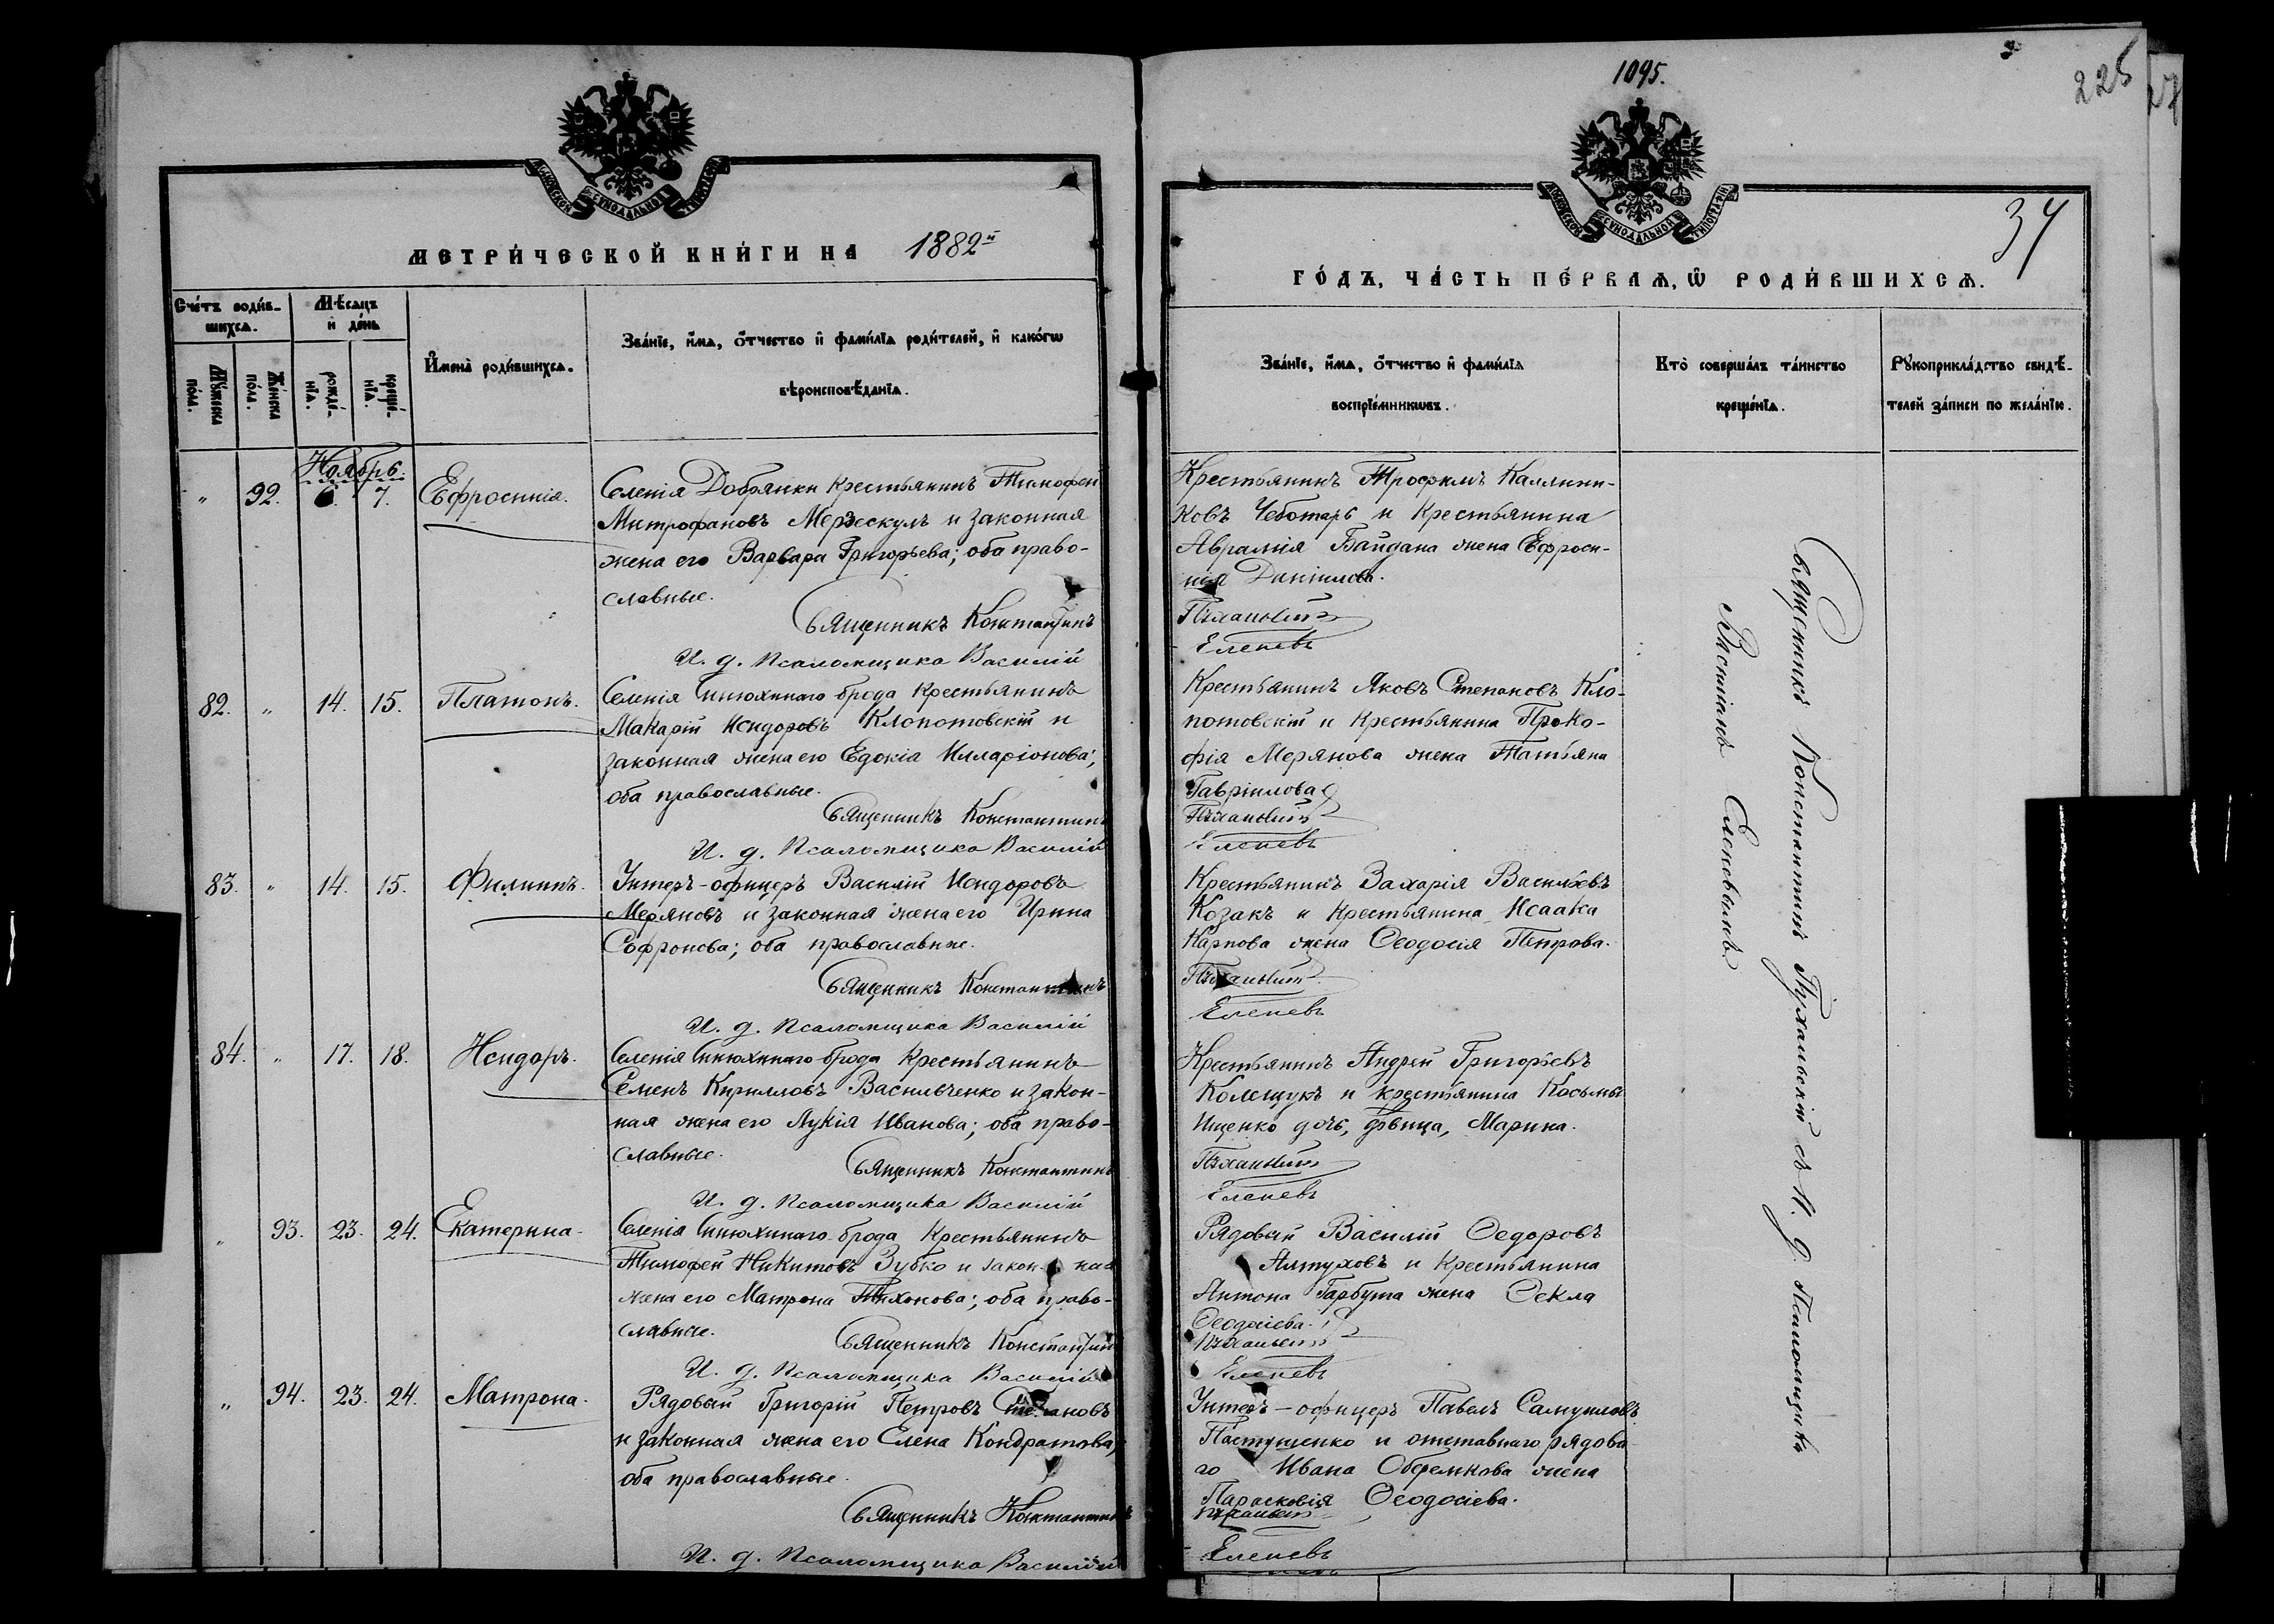 1095.
225
27
34
МЕТРИ́ЧЕСКОЙ КНИ́ГИ НА 1882й
ГО́ДЪ, ЧА́СТЬ ПЕ́РВАѦ, Ѡ РОДИ́ВШИХСѦ.
МОСКОВСКОЙ СѴНОДАЛЬНОЙ ТИПОГРАФІИ
МОСКОВСКОЙ СѴНОДАЛЬНОЙ ТИПОГРАФІИ
Сче́тъ роди́в-
шихсѧ.
Мꙋ́жеска по́ла.
Же́нска по́ла.
Мѣ́сѧцъ
и де́нь
рожде́-
нїѧ.
креще́-
нїѧ.
И҆мена̀ роди́вшихсѧ.
Зва́нїе, и҆́мѧ, ѻ҆́тчество и҆ фами́лїѧ роди́телей, и҆ како́гѡ
вѣроисповѣ́данїѧ.
Зва́нїе, и҆́мѧ, ѻ҆́тчество и҆ фами́лїѧ
воспрїе́мникѡвъ.
Кто̀ соверша́лъ та́инство
креще́нїѧ.
Рꙋкоприкла́дство свидѣ́-
телей за́писи по жела́нїю.
Ноябрь.
" 92. 6. 7. Евфросинія.
Селенія Добрянки крестьянинъ Тимофей
Митрофановъ Мерзескулъ и законная
жена его Варвара Григорьева; оба право-
славные.
Священникъ Константинъ
И. д. Псаломщика Василій
Крестьянинъ Трофимъ Каллини-
ковъ Чеботарь и крестьянина
Авраамія Байдана жена Евфроси-
нія Даніилова.
Пѣхальскій
Еленевъ
82. " 14. 15. Платонъ.
Селенія Синюхинаго брода крестьянинъ
Макарій Исидоровъ Клопотовскій и
законная жена его Едокіа Илларіонова;
оба православные.
Священникъ Константинъ
И. д. Псаломщика Василій
Крестьянинъ Яковъ Степановъ Кло-
потовскій и крестьянина Проко-
фія Мерянова жена Татьяна
Гавріилова
Пѣхальскій
Еленевъ
83. " 14. 15. Филиппъ.
Унтеръ-офицеръ Василій Исидоровъ
Меряновъ и законная жена его Ирина
Софронова; оба православные.
Священникъ Константинъ
И. д. Псаломщика Василій
Крестьянинъ Захарія Васильевъ
Козакъ и крестьянина Исаака
Карпова жена Ѳеодосія Петрова.
Пѣхальскій
Еленевъ
84. " 17. 18. Исидоръ.
Селенія Синюхинаго брода крестьянинъ
Семенъ Кирилловъ Васильченко и закон-
ная жена его Лукія Иванова; оба право-
славные.
Священникъ Константинъ
И. д. Псаломщика Василій
Крестьянинъ Андрей Григорьевъ
Колещукъ и крестьянина Косьмы
Ищенко дочь, дѣвица, Марина.
Пѣхальскій
Еленевъ
" 93. 23. 24. Екатерина.
Селенія Синюхинаго брода крестьянинъ
Тимофей Никитовъ Зубко и закон ная
жена его Матрона Тихонова; оба право-
славные.
Священникъ Константинъ
И. д. Псаломщика Василій
Рядовый Василій Ѳедоровъ
Алтуховъ и крестьянина
Антона Гарбуза жена Ѳекла
Ѳеодосіева.
Пѣхальскій
Еленевъ
" 94. 23. 24. Матрона.
Рядовый Григорій Петровъ Степановъ
и законная жена его Елена Кондратова;
оба православные.
Священникъ Константинъ
И. д. Псаломщика Василій
Унтеръ-офицеръ Павелъ Самуиловъ
Пастушенко и отставнаго рядова
го Ивана Оберемкова жена
Парасковія Ѳеодосіева.
Пѣхальскій
Еленевъ
Священникъ Константинъ Пѣхальскій съ И. д. Псаломщика
Василіемъ Еленевымъ